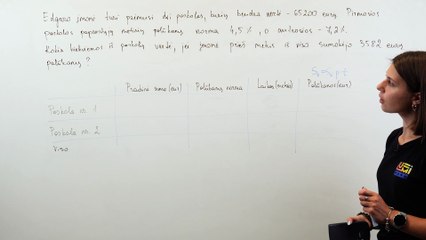 Edgaro įmonė turi paėmusi dvi paskolas, kurių bendra vertė - 65200 eurų. Pirmosios
paskolos paprastųjų metinių palūkanų norma 4,5 %, o antrosios - 7,2 %.
Kokia kiekvienos iš paskolų vertė, jei įmonė per metus iš viso sumokėjo 3582 eurus
palūkanų?
Pradinė suma (eur) Palūkanų norma Laikas (metai) Palūkanos (eur)
Paskola nr. 1
Paskola nr. 2
Viso